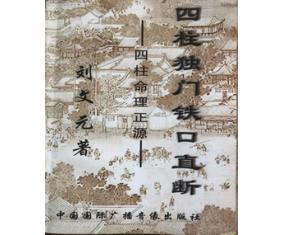 四柱独门铁口直断
——四柱命理正源——
刘文元著
中国国际广播音像出版社